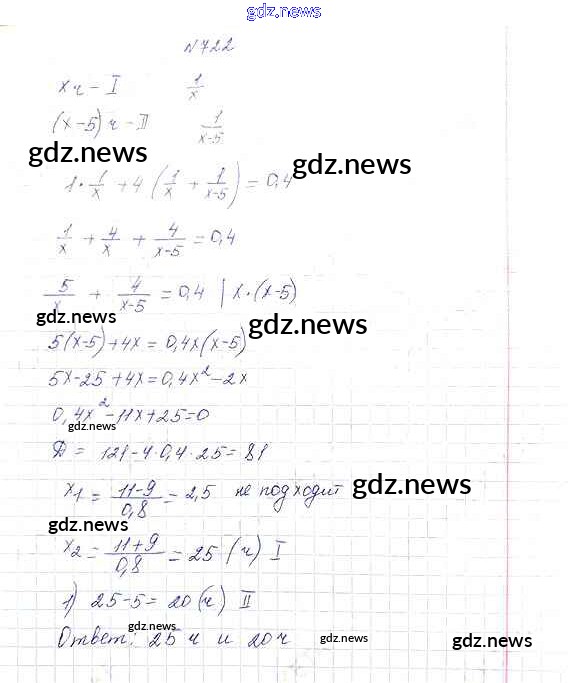 gdz.news
N722
x ч - I 1/x
(x-5) ч - II 1/(x-5)
gdz.news
gdz.news
1·1/x + 4(1/x + 1/(x-5)) = 0,4
1/x + 4/x + 4/(x-5) = 0,4
5/x + 4/(x-5) = 0,4 | x·(x-5)
gdz.news
gdz.news
5(x-5)+4x = 0,4x(x-5)
5x-25+4x=0,4x²-2x
0,4x²-11x+25=0
gdz.news
Д = 121-4·0,4·25=81
x1 = (11-9)/0,8 = 2,5 не подходит
gdz.news
gdz.news
x2 = (11+9)/0,8 = 25 (ч) I
1) 25-5=20(ч) II
gdz.news
Ответ: 25 ч и 20 ч
gdz.news
gdz.news